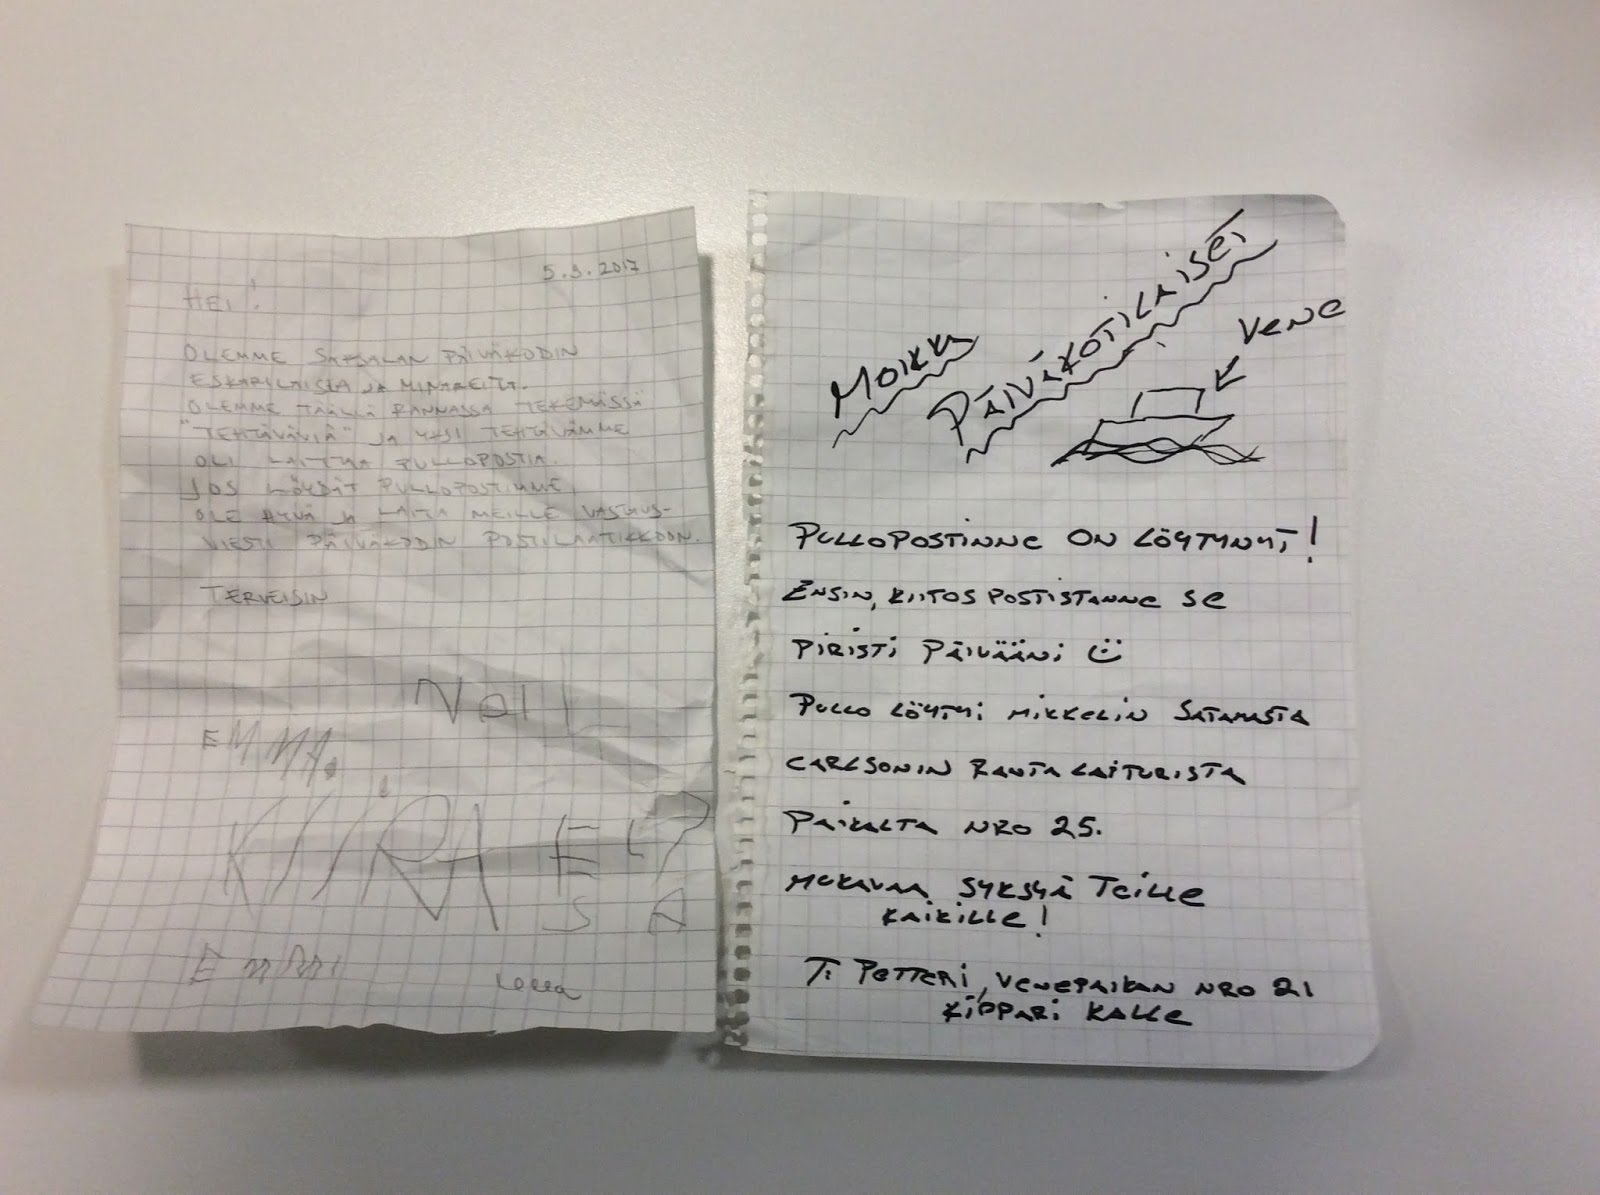 5.9.2017
HEI!
OLEMME SAKSALAN PÄIVÄKODIN
ESKARILAISIA JA
OLEMME TÄÄLLÄ RANNASSA TEKEMÄSSÄ
"TEHTÄVÄVIÄ" JA YKSI TEHTÄVÄMME
OLI LAITTAA PULLOPOSTIA.
JOS LÖYDÄT PULLOPOSTIMME,
OLE HYVÄ JA LAITA MEILLE VASTAUS-
VIESTI PÄIVÄKODIN POSTILAATIKKOON.
TERVEISIN
EMMA.
KIIRA
EL
SA
MOIKKA
PÄIVÄKOTILAISET
VENE
PULLOPOSTINNE ON LÖYTYNYT!
ENSIN, KIITOS POSTISTANNE SE
PIRISTI PÄIVÄÄNI
PULLO LÖYTYI MIKKELIN SATAMASTA
CARLSONIN RANTA LAITURISTA
PAIKALTA NRO 25.
MUKAVAA SYKSYÄ TEILLE
KAIKILLE!
T: PETTERI, VENEPAIKAN NRO 21
KIPPARI KALLE